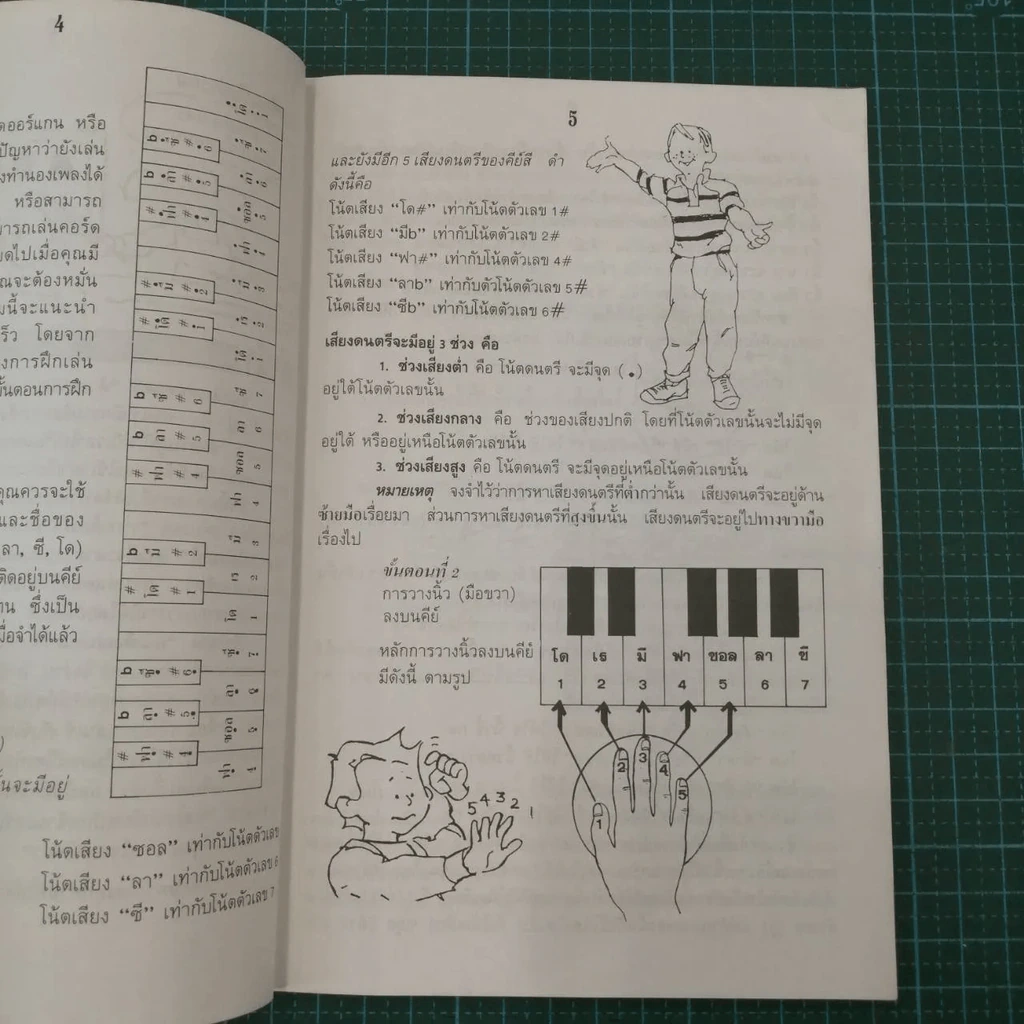 4
ออร์แกน หรือ
ปัญหาว่ายังเล่น
ทำนองเพลงได้
หรือสามารถ
ารถเล่นคอร์ด
ดไปเมื่อคุณมี
ณจะต้องหมั่น
นี้จะแนะนำ
ร็ว โดยจาก
งการฝึกเล่น
ั้นตอนการฝึก
คุณควรจะใช้
และชื่อของ
ลา, ซี, โด)
ติดอยู่บนคีย์
าน ซึ่งเป็น
มื่อจำได้แล้ว
ั้นจะมีอยู่
โน้ตเสียง “ซอล” เท่ากับโน้ตตัวเลข
โน้ตเสียง “ลา” เท่ากับโน้ตตัวเลข 6
โน้ตเสียง “ซี” เท่ากับโน้ตตัวเลข 7
5
และยังมีอีก 5 เสียงดนตรีของคีย์สี ดำ
ดังนี้คือ
โน้ตเสียง “โด#” เท่ากับโน้ตตัวเลข 1#
โน้ตเสียง “มีb” เท่ากับโน้ตตัวเลข 2#
โน้ตเสียง “ฟา#” เท่ากับโน้ตตัวเลข 4#
โน้ตเสียง “ลาb” เท่ากับตัวโน้ตตัวเลข 5#
โน้ตเสียง “ซีb” เท่ากับโน้ตตัวเลข 6#
เสียงดนตรีจะมีอยู่ 3 ช่วง คือ
1. ช่วงเสียงต่ำ คือ โน้ตดนตรี จะมีจุด (•)
อยู่ใต้โน้ตตัวเลขนั้น
2. ช่วงเสียงกลาง คือ ช่วงของเสียงปกติ โดยที่โน้ตตัวเลขนั้นจะไม่มีจุด
อยู่ใต้ หรืออยู่เหนือโน้ตตัวเลขนั้น
3. ช่วงเสียงสูง คือ โน้ตดนตรี จะมีจุดอยู่เหนือโน้ตตัวเลขนั้น
หมายเหตุ จงจำไว้ว่าการหาเสียงดนตรีที่ต่ำกว่านั้น เสียงดนตรีจะอยู่ด้าน
ซ้ายมือเรื่อยมา ส่วนการหาเสียงดนตรีที่สูงขึ้นนั้น เสียงดนตรีจะอยู่ไปทางขวามือ
เรื่องไป
ขั้นตอนที่ 2
การวางนิ้ว (มือขวา)
ลงบนคีย์
หลักการวางนิ้วลงบนคีย์
มีดังนี้ ตามรูป
โด เร มี ฟา ซอล ลา ซี
1 2 3 4 5 6 7
1 2 3 4 5
5 4 3 2 1